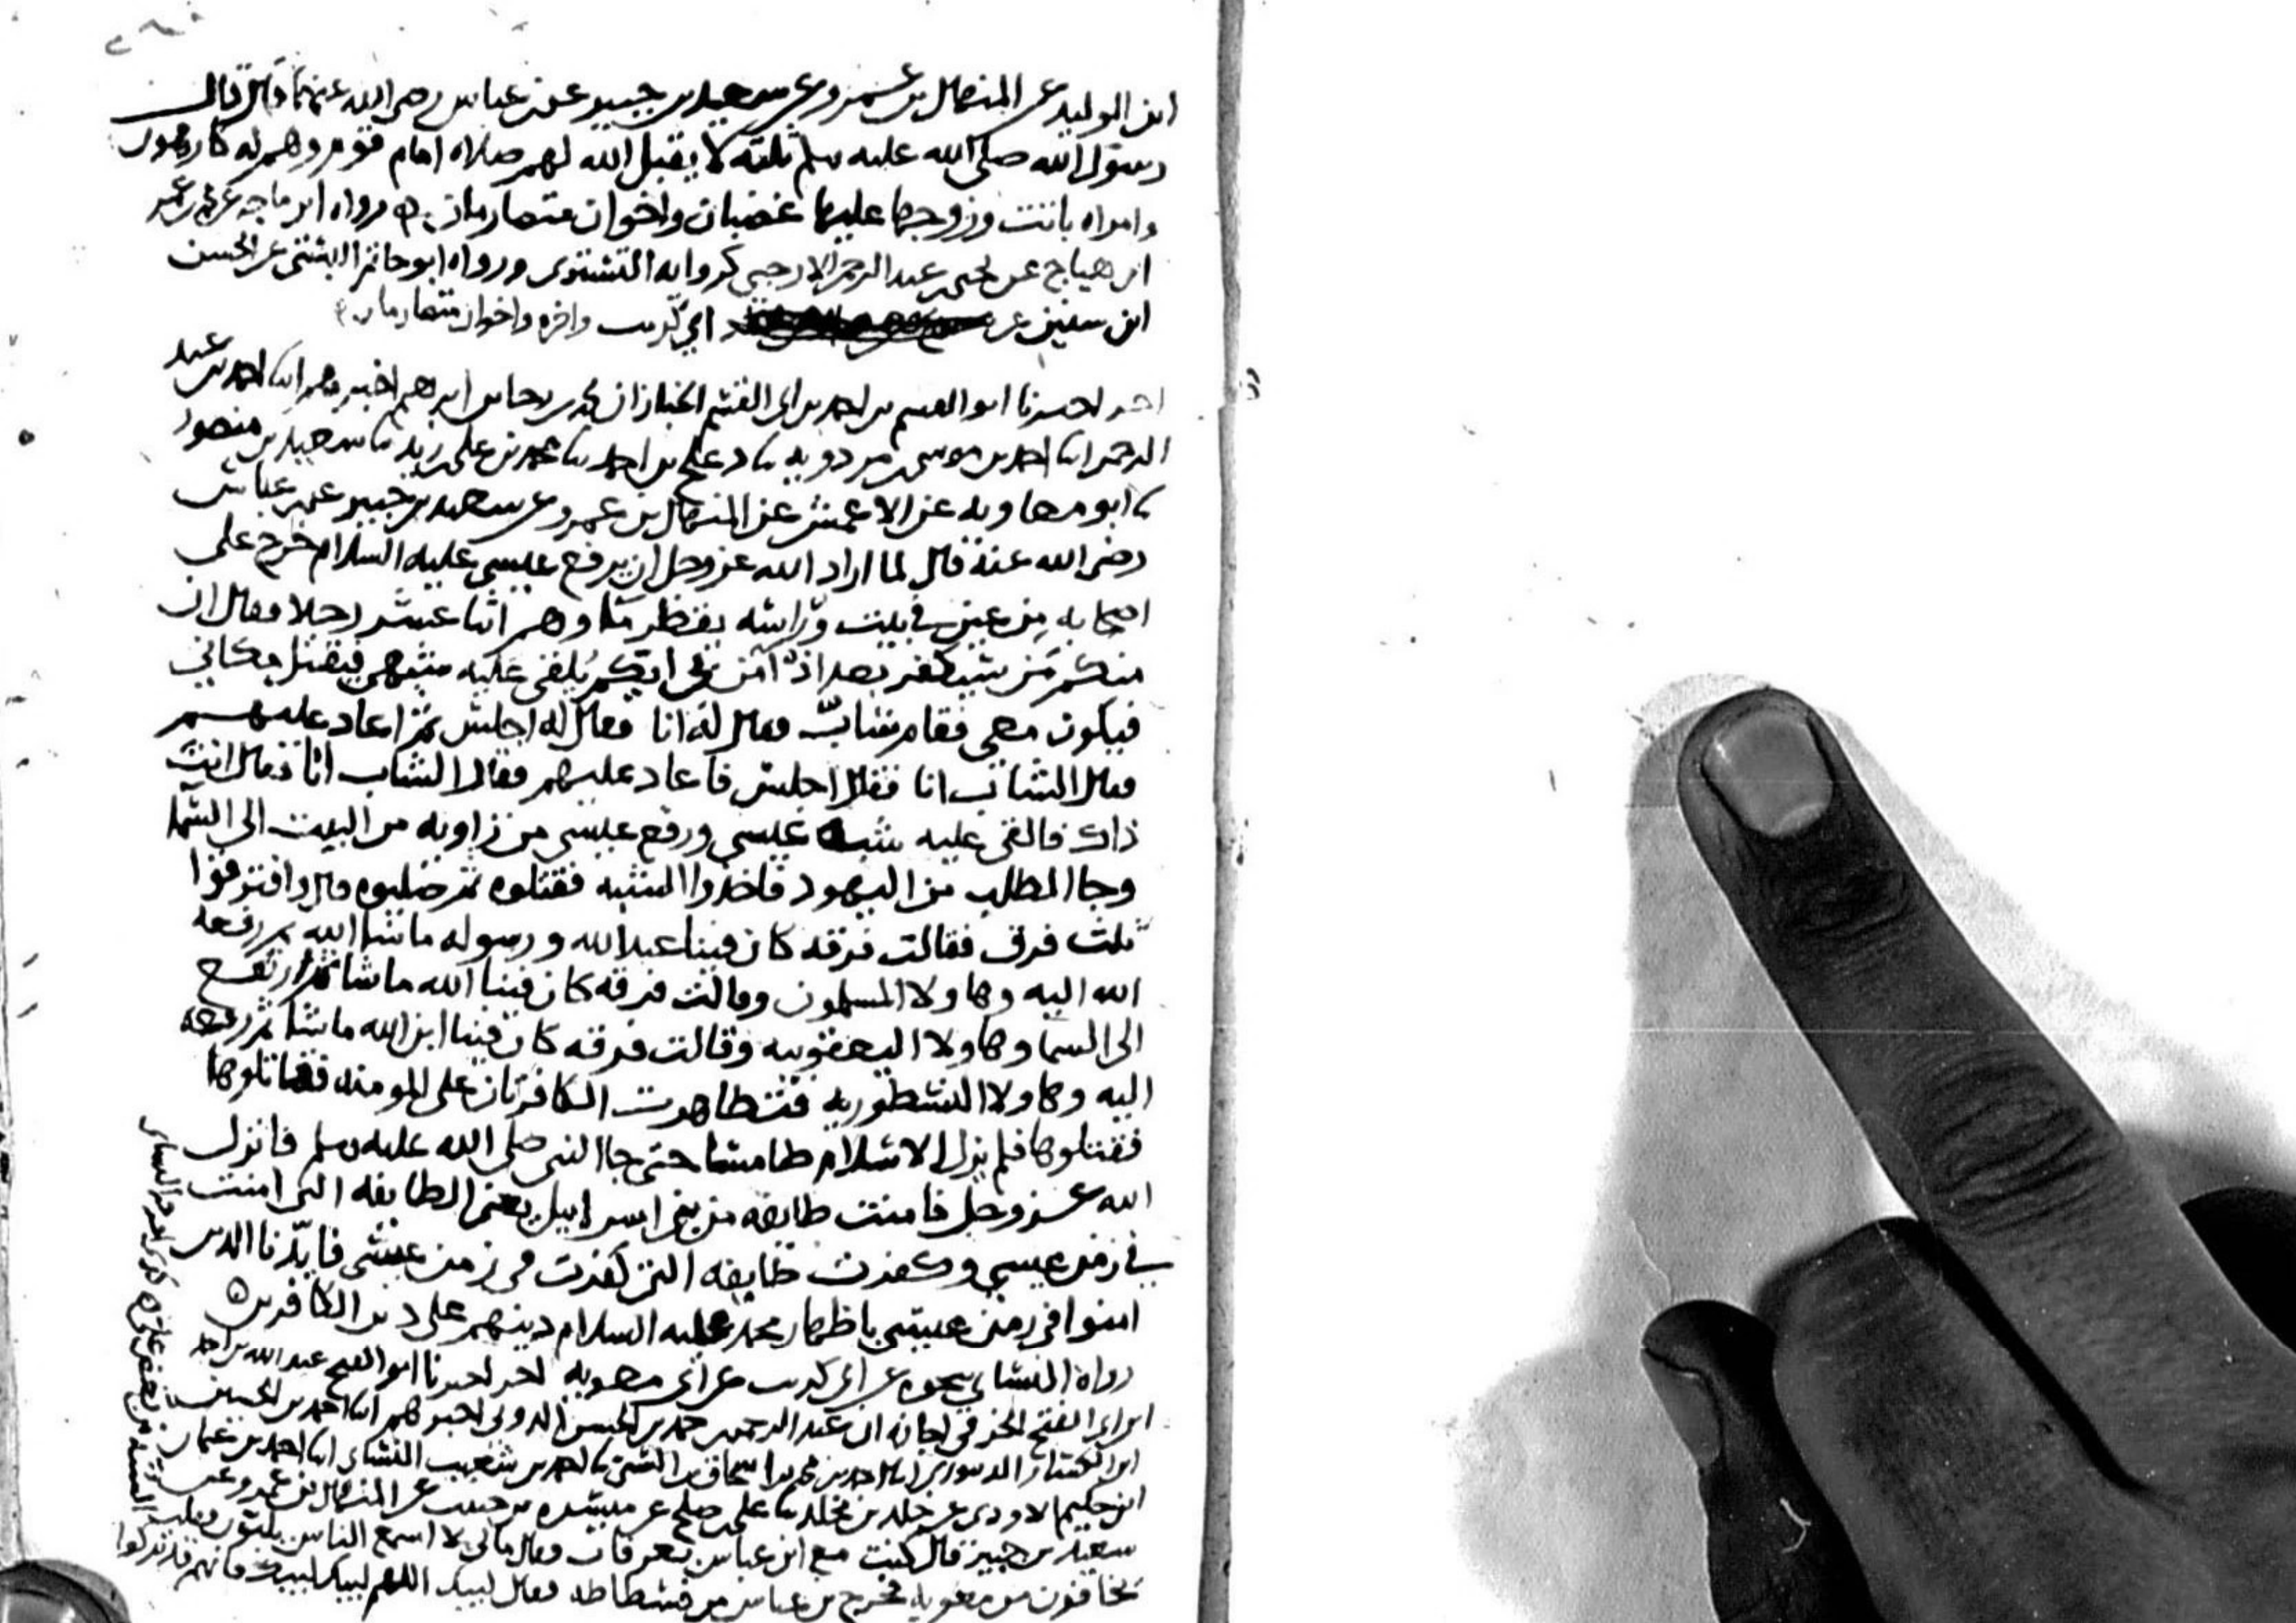 ابن الوليد عن المنهال بن عمرو عن سعيد بن جبير عن بن عباس رضي الله عنهما قال قال
رسول الله صلى الله عليه وسلم ثلثه لا يقبل الله لهم صلاه امام قوم وهم له كارهون
وامراه باتت وزوجها عليها غضبان واخوان متصارمان رواه ابن ماجه عن محمد بن عمر
ابن هياج عن يحيى بن عبد الرحمن الارجبي كروايه التستري ورواه ابو حاتم البستي عن الحسن
ابن سفين عن ابي كريب واخره واخوان متصارمان
اخر اخبرنا ابو القسم بن احمد بن ابي القسم الخباز ان محمد بن رجا بن ابراهيم اخبرهم ابنا احمد بن عبد
الرحمن ابنا احمد بن موسى بن مردويه نا دعلج بن احمد نا محمد بن علي بن زيد نا سعيد بن منصور
نا ابو معاويه عن الاعمش عن المنهال بن عمرو عن سعيد بن جبير عن بن عباس
رضي الله عنه قال لما اراد الله عز وجل ان يرفع عيسى عليه السلام خرج على
اصحابه من عين في بيت وراسه يقطر ما وهم اثنا عشر رجلا فقال ان
منكم من سيكفر بعد اذ امن بي ايكم يلقى عليه شبهي فيقتل مكاني
فيكون معي فقام شاب فقال له انا فقال له اجلس ثم اعاد عليهم
فقال الشاب انا فقال اجلس فاعاد عليهم فقال الشاب انا فقال انت
ذاك فالقي عليه شبه عيسى ورفع عيسى من زاويه من البيت الى السما
وجا الطلب من اليهود فاخذوا الشبه فقتلوه ثم صلبوه قال وافترقوا
ثلث فرق فقالت فرقه كان فينا عبد الله ورسوله ما شا الله ثم رفعه
الله اليه وهاولا المسلمون وقالت فرقه كان فينا الله ما شا ثم ارتفع
الى السما وهاولا اليعقوبيه وقالت فرقه كان فينا ابن الله ما شا ثم رفعه
اليه وهاولا النسطوريه فتظاهرت الكافرتان على المومنه فقاتلوها
فقتلوها فلم يزل الاسلام طامسا حتى جا النبي صلى الله عليه وسلم فانزل
الله عز وجل فامنت طايفه من بني اسرايل يعني الطايفه التي امنت
في زمن عيسى وكفرت طايفه التي كفرت في زمن عيسى فايدنا الذين
امنوا في زمن عيسى باظهار محمد عليه السلام دينهم على دين الكافرين
رواه النسائي بنحوه عن ابي كريب عن ابي معويه اخر اخبرنا ابو الفتح عبد الله بن احمد
ابن ابي الفتح الخرقي اجازه ان عبد الرحمن بن حمد بن الحسن الدوني اخبرهم ابنا احمد بن الحسين
ابن الكسار الدينوري ابنا احمد بن محمد بن اسحاق بن السني نا احمد بن شعيب النسائي ابنا احمد بن عثمان
ابن حكيم الاودي عن خلد بن مخلد نا علي بن صلح عن ميسره بن حبيب عن المنهال بن عمرو عن
سعيد بن جبير قال كنت مع ابن عباس بعرفات فقال ما لي لا اسمع الناس يلبون فقلت
يخافون من معويه فخرج بن عباس من فسطاطه فقال لبيك اللهم لبيك لبيك فانهم قد تركوا
السنه من بغض علي